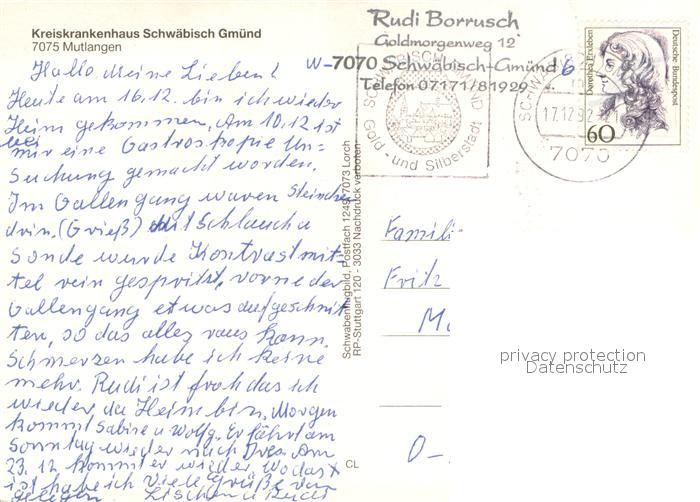 Kreiskrankenhaus Schwäbisch Gmünd
7075 Mutlangen
Hallo meine Lieben!
Heute am 16.12. bin ich wieder
Heim gekommen, Am 10.12 ist
bei
mir eine Gastroskopie Un=
suchung gemacht worden.
Im Gallengang waren Steinchen
drin, (Grieß) Mit Schlauch u
Sonde wurde Kontrastmit-
tel rein gespritzt, vorne der
Gallengang etwas aufgeschnit
ten, so das alles raus kann.
Schmerzen habe ich keine
mehr. Rudi ist froh das ich
wieder da Heim bin, Morgen
kommt Sabine u Wolfg. Er fährt am
Sonntag wieder nach Dres. Am
23.12 kommt er wieder.
ist habe ich Viele Grüße
Lischen u Rudi
Schwabenflugbild, Postfach 1249, 7073 Lorch
RP-Stuttgart 120 - 3033 Nachdruck verboten
CL
Rudi Borrusch
Goldmorgenweg 12
W-7070 Schwäbisch-Gmünd 6
Telefon 07171/81929
SCHWÄBISCH GMÜND
Gold- und Silberstadt
SCHWÄ
17.12.92
7070
Dorothea Erxleben
Deutsche Bundespost
60
Famili
Fritz
M
O-
privacy protection
Datenschutz